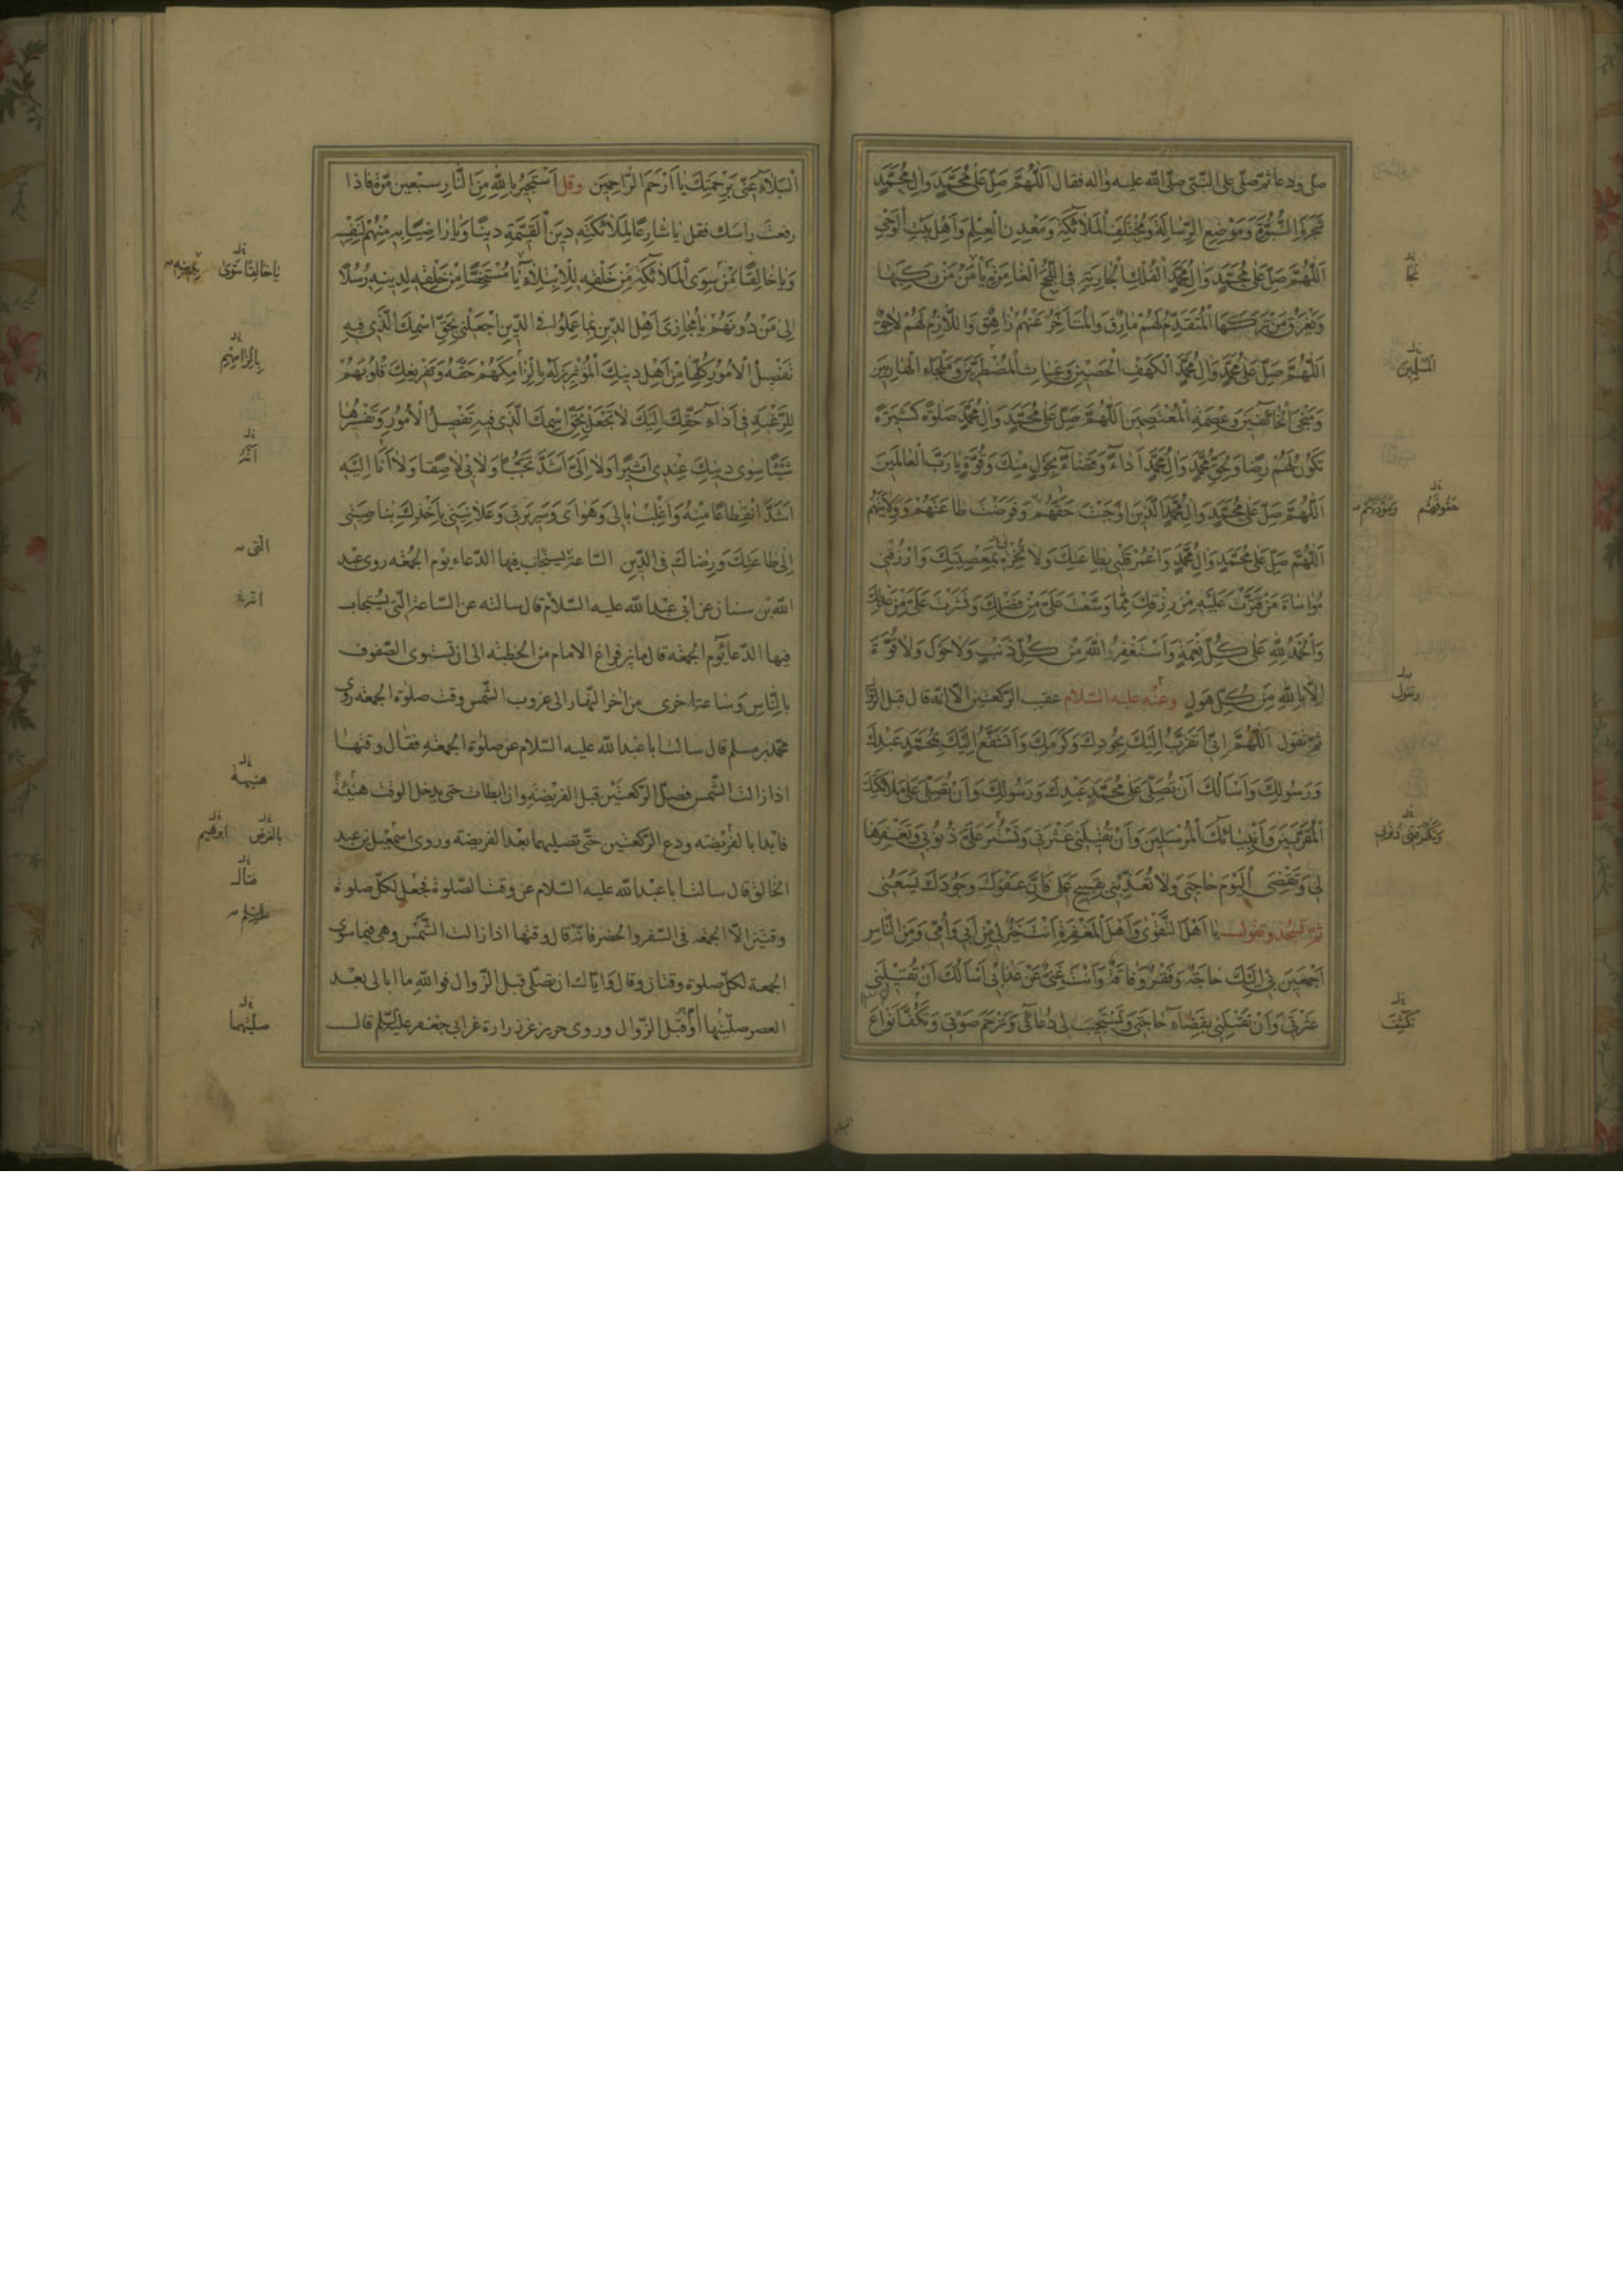 صلى ودعا ثم صلى على النبي صلى الله عليه واله فقال اَللّٰهُمَّ صَلِّ عَلىٰ مُحَمَّدٍ وَالِ مُحَمَّدٍ
شَجَرَةِ النُّبُوَّةِ وَمَوْضِعِ الرِّسٰالَةِ وَمُخْتَلَفِ الْمَلاٰئِكَةِ وَمَعْدِنِ الْعِلْمِ وَاَهْلِ بَيْتِ الْوَحْيِ
اَللّٰهُمَّ صَلِّ عَلىٰ مُحَمَّدٍ وَالِ مُحَمَّدٍ اَلْفُلْكِ الْجٰارِيَةِ فِي اللُّجَجِ الْغٰامِرَةِ يَاْمَنُ مَنْ رَكِبَهٰا
وَيَغْرَقُ مَنْ تَرَكَهَا الْمُتَقَدِّمُ لَهُمْ مٰارِقٌ وَالْمُتَاَخِّرُ عَنْهُمْ زٰاهِقٌ وَاللّاٰزِمُ لَهُمْ لاٰحِقٌ
اَللّٰهُمَّ صَلِّ عَلىٰ مُحَمَّدٍ وَالِ مُحَمَّدٍ اَلْكَهْفِ الْحَصِيْنِ وَغِيٰاثِ الْمُضْطَرِّيْنَ وَمَلْجَاءِ الْهٰارِبِيْنَ
وَمَنْجَى الْخٰائِفِيْنَ وَعِصْمَةِ الْمُعْتَصِمِيْنَ اَللّٰهُمَّ صَلِّ عَلىٰ مُحَمَّدٍ وَالِ مُحَمَّدٍ صَلوٰةً كَثِيْرَةً
تَكُوْنُ لَهُمْ رِضًا وَلِحَقِّ مُحَمَّدٍ وَالِ مُحَمَّدٍ اَدٰاءً وَقَضٰاءً بِحَوْلٍ مِنْكَ وَقُوَّةٍ يٰا رَبَّ الْعٰالَمِيْنَ
اَللّٰهُمَّ صَلِّ عَلىٰ مُحَمَّدٍ وَالِ مُحَمَّدٍ الَّذِيْنَ اَوْجَبْتَ حَقَّهُمْ وَفَرَضْتَ طٰاعَتَهُمْ وَوِلاٰيَتَهُمْ
اَللّٰهُمَّ صَلِّ عَلىٰ مُحَمَّدٍ وَالِ مُحَمَّدٍ وَاعْمُرْ قَلْبِيْ بِطٰاعَتِكَ وَلاٰ تُخْزِهِ بِمَعْصِيَتِكَ وَارْزُقْنِيْ
مُوٰاسٰاةَ مَنْ قَتَّرْتَ عَلَيْهِ مِنْ رِزْقِكَ مِمّٰا وَسَّعْتَ عَلَيَّ مِنْ فَضْلِكَ وَنَشَرْتَ عَلَيَّ مِنْ عَدْلِكَ
وَالْحَمْدُ لِلّٰهِ عَلىٰ كُلِّ نِعْمَةٍ وَاَسْتَغْفِرُ اللّٰهَ مِنْ كُلِّ ذَنْبٍ وَلاٰ حَوْلَ وَلاٰ قُوَّةَ
اِلاّٰ بِاللّٰهِ مِنْ كُلِّ هَوْلٍ وعنه عليه السلام عقيب الركعتين الا انه قال قبل الز
ثم تقول اَللّٰهُمَّ اِنِّيْ اَتَقَرَّبُ اِلَيْكَ بِجُوْدِكَ وَكَرَمِكَ وَاَتَشَفَّعُ اِلَيْكَ بِمُحَمَّدٍ عَبْدِكَ
وَرَسُوْلِكَ وَاَسْاَلُكَ اَنْ تُصَلِّيَ عَلىٰ مُحَمَّدٍ عَبْدِكَ وَرَسُوْلِكَ وَاَنْ تُصَلِّيَ عَلىٰ مَلاٰئِكَتِكَ
الْمُقَرَّبِيْنَ وَاَنْبِيٰائِكَ الْمُرْسَلِيْنَ وَاَنْ تُقِيْلَنِيْ عَثْرَتِيْ وَتَسْتُرَ عَلَيَّ ذُنُوْبِيْ وَتَغْفِرَهٰا
لِيْ وَتَقْضِيَ الْيَوْمَ حٰاجَتِيْ وَلاٰ تُعَذِّبَنِيْ بِقَبِيْحِ عَمَلِيْ فَاِنَّ عَفْوَكَ وَجُوْدَكَ يَسَعُنِيْ
ثم تسجد وتقول يٰا اَهْلَ التَّقْوىٰ وَاَهْلَ الْمَغْفِرَةِ اَنْتَ خَيْرٌ لِيْ مِنْ اَبِيْ وَاُمِّيْ وَمِنَ النّٰاسِ
اَجْمَعِيْنَ بِيْ اِلَيْكَ حٰاجَةٌ وَفَقْرٌ وَفٰاقَةٌ وَاَنْتَ غَنِيٌّ عَنْ عَذٰابِيْ اَسْاَلُكَ اَنْ تُقِيْلَنِيْ
عَثْرَتِيْ وَاَنْ تَقْلِبَنِيْ بِقَضٰاءِ حٰاجَتِيْ وَتَسْتَجِيْبَ لِيْ دُعٰائِيْ وَتَرْحَمَ صَوْتِيْ وَتَكُفَّ اَنْوٰاعَ
نجا
المسلمين
حقوقهم ومودتهم
رسول
تكشف
اَلْبَلاٰءِ عَنِّيْ بِرَحْمَتِكَ يٰا اَرْحَمَ الرّٰاحِمِيْنَ وقل اَسْتَجِيْرُ بِاللّٰهِ مِنَ النّٰارِ سبعين مرة فاذا
رفعت راسك فقل يٰا شٰارِعًا لِمَلاٰئِكَتِهِ دِيْنَ الْقَيِّمَةِ دِيْنًا وَيٰا رٰاضِيًا بِهِ مِنْهُمْ لِنَفْسِهِ
وَيٰا خٰالِقًا مَنْ سِوَى الْمَلاٰئِكَةِ مِنْ خَلْقِهِ لِلْاِبْتِلاٰءِ يٰا مُسْتَخِصًّا مِنْ خَلْقِهِ لِدِيْنِهِ رُسُلًا
اِلىٰ مَنْ دُوْنَهُمْ يٰا مُجٰازِيَ اَهْلِ الدِّيْنِ بِمٰا عَمِلُوْا فِي الدِّيْنِ اجْعَلْنِيْ بِحَقِّ اسْمِكَ الَّذِيْ فِيْهِ
تَفْصِيْلُ الْاُمُوْرِ كُلِّهٰا مِنْ اَهْلِ دِيْنِكَ الْمُؤْثِرِيْنَ لَهُ بِاِلْزٰامِكَهُمْ حَقَّهُ وَتَفْرِيْغِكَ قُلُوْبَهُمْ
لِلرَّغْبَةِ فِيْ اَدٰاءِ حَقِّكَ اِلَيْكَ لاٰ تَجْعَلْ بِحَقِّ اسْمِكَ الَّذِيْ فِيْهِ تَفْصِيْلُ الْاُمُوْرِ وَتَفْسِيْرُهٰا
شَيْئًا سِوىٰ دِيْنِكَ عِنْدِيْ اَثِيْرًا وَلاٰ اِلَيَّ اَشَدَّ تَحَبُّبًا وَلاٰ بِيْ لاٰصِقًا وَلاٰ اَنَا اِلَيْهِ
اَشَدَّ انْقِطٰاعًا مِنْهُ وَاغْلِبْ بٰالِيْ وَهَوٰايَ وَسَرِيْرَتِيْ وَعَلاٰنِيَتِيْ بِاَخْذِكَ بِنٰاصِيَتِيْ
اِلىٰ طٰاعَتِكَ وَرِضٰاكَ فِي الدِّيْنِ الساعة يستجاب فيها الدعاء يوم الجمعه روى عبد
الله بن سنان عن ابي عبد الله عليه السلام قال سالته عن الساعة التي يستجاب
فيها الدعا يوم الجمعه قال ما بين فراغ الامام من الخطبه الى ان تستوى الصفوف
بالناس وساعة اخرى من اخر النهار الى غروب الشمس وقت صلوة الجمعه روى
محمد بن مسلم قال سالت ابا عبد الله عليه السلام عن صلوة الجمعه فقال وقتها
اذا زالت الشمس فصل الركعتين قبل الفريضه وان ابطات حتى يدخل الوقت هنيئة
فابدا بالفريضه ودع الركعتين حتى تصليهما بعد الفريضة وروى اسمعيل بن عبد
الخالق قال سالت ابا عبد الله عليه السلام عن وقت الصلوة فجعل لكل صلوة
وقتين الا الجمعه في السفر والحضر فانه قال وقتها اذا زالت الشمس وهي فيما سوى
الجمعة لكل صلوة وقتان وقال واياك ان تصلي قبل الزوال فوالله ما ابالى بعد
العصر صليتها او قبل الزوال وروى حريز عن زرارة عن ابي جعفر عليه السلم قال
يٰا خٰالِقًا سِوىٰ
بالزامهم
اثر
التي
هنيهة
بالفرض ابرهيم
صليتهما